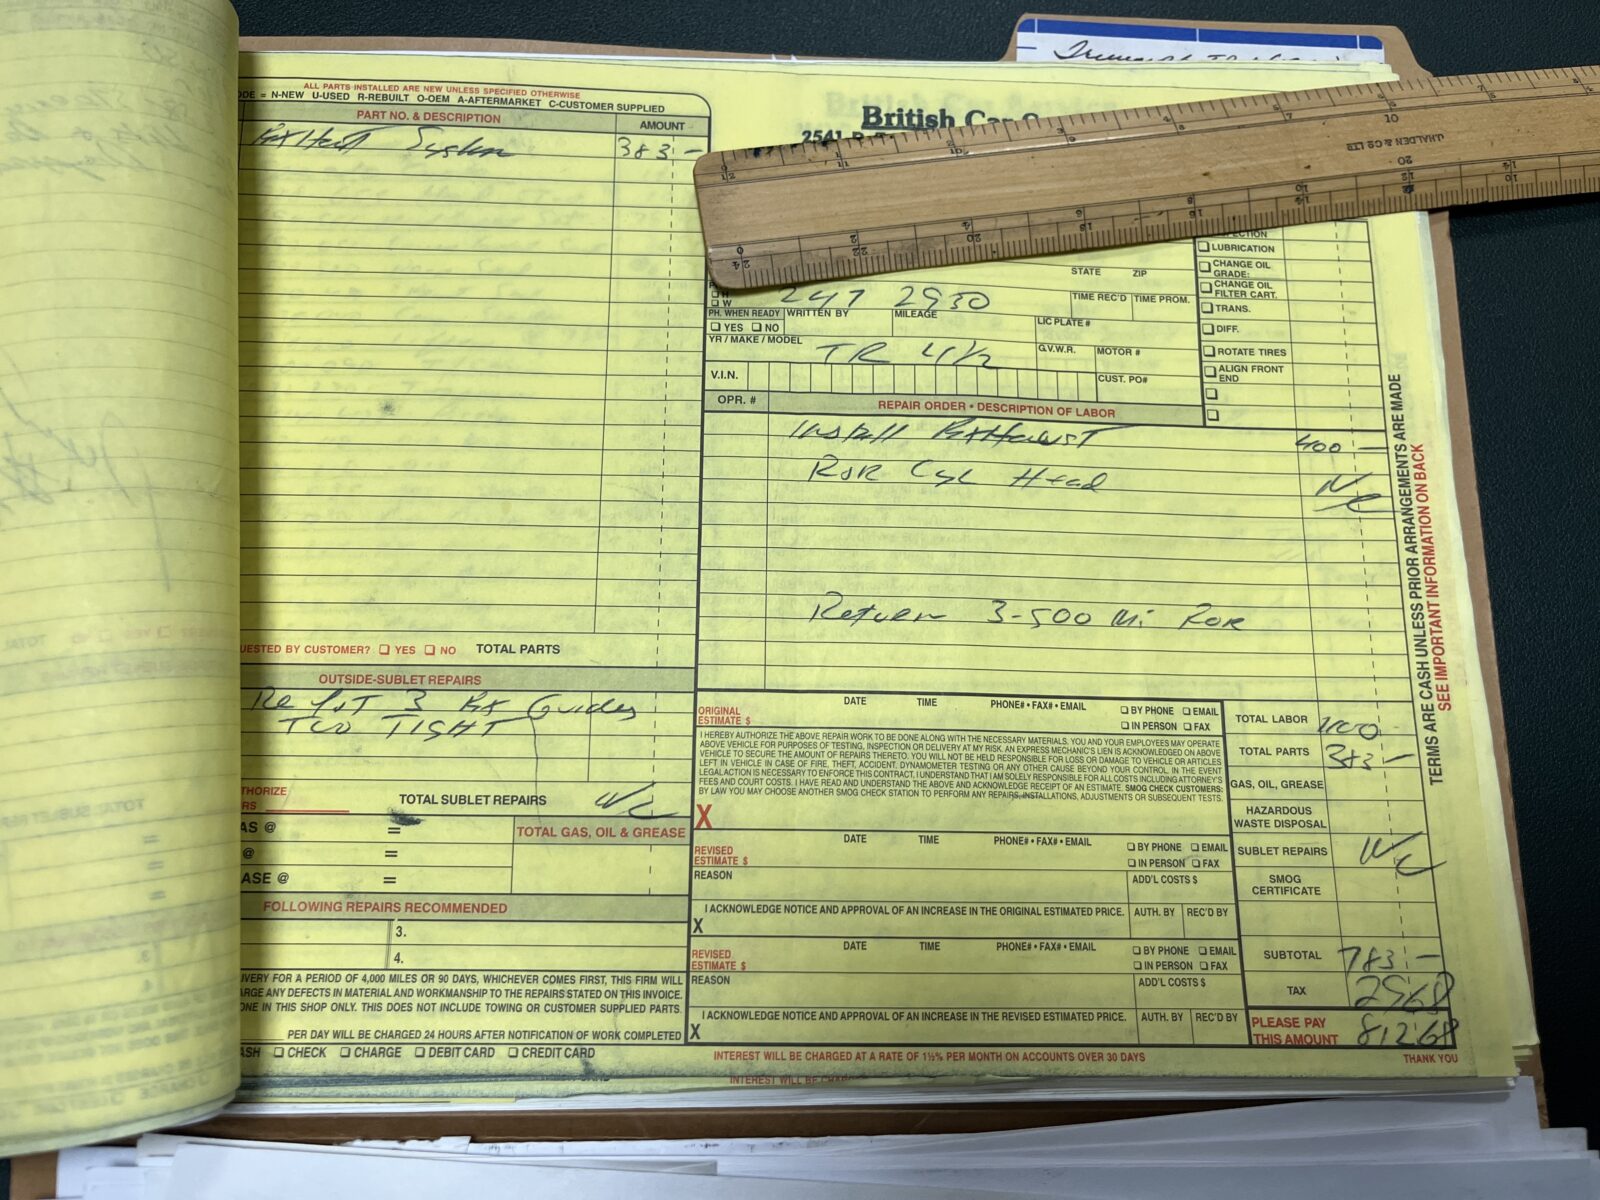 ALL PARTS INSTALLED ARE NEW UNLESS SPECIFIED OTHERWISE
= N-NEW U-USED R-REBUILT O-OEM A-AFTERMARKET C-CUSTOMER SUPPLIED
PART NO. & DESCRIPTION AMOUNT
System 383 –
UESTED BY CUSTOMER? ☐ YES ☐ NO TOTAL PARTS
OUTSIDE-SUBLET REPAIRS
3 Guides
TIGHT
THORIZE
RS
TOTAL SUBLET REPAIRS N/C
AS @ =
@ =
ASE @ =
TOTAL GAS, OIL & GREASE
FOLLOWING REPAIRS RECOMMENDED
3.
4.
IVERY FOR A PERIOD OF 4,000 MILES OR 90 DAYS, WHICHEVER COMES FIRST, THIS FIRM WILL
ARGE ANY DEFECTS IN MATERIAL AND WORKMANSHIP TO THE REPAIRS STATED ON THIS INVOICE.
ONE IN THIS SHOP ONLY. THIS DOES NOT INCLUDE TOWING OR CUSTOMER SUPPLIED PARTS.
PER DAY WILL BE CHARGED 24 HOURS AFTER NOTIFICATION OF WORK COMPLETED
ASH ☐ CHECK ☐ CHARGE ☐ DEBIT CARD ☐ CREDIT CARD
British Car
2541
J.HALDEN & CO LTD
STATE ZIP
☐ W 247 2930 TIME REC'D TIME PROM.
PH. WHEN READY WRITTEN BY MILEAGE LIC PLATE #
☐ YES ☐ NO
YR / MAKE / MODEL TR 4 1/2 G.V.W.R. MOTOR #
V.I.N. CUST. PO#
☐ LUBRICATION
☐ CHANGE OIL GRADE:
☐ CHANGE OIL FILTER CART.
☐ TRANS.
☐ DIFF.
☐ ROTATE TIRES
☐ ALIGN FRONT END
OPR. # REPAIR ORDER • DESCRIPTION OF LABOR
Install Exhaust 400 –
R&R Cyl Head N/C
Return 3-500 Mi
ORIGINAL ESTIMATE $ DATE TIME PHONE# • FAX# • EMAIL ☐ BY PHONE ☐ EMAIL
☐ IN PERSON ☐ FAX
I HEREBY AUTHORIZE THE ABOVE REPAIR WORK TO BE DONE ALONG WITH THE NECESSARY MATERIALS. YOU AND YOUR EMPLOYEES MAY OPERATE
ABOVE VEHICLE FOR PURPOSES OF TESTING, INSPECTION OR DELIVERY AT MY RISK. AN EXPRESS MECHANIC'S LIEN IS ACKNOWLEDGED ON ABOVE
VEHICLE TO SECURE THE AMOUNT OF REPAIRS THERETO. YOU WILL NOT BE HELD RESPONSIBLE FOR LOSS OR DAMAGE TO VEHICLE OR ARTICLES
LEFT IN VEHICLE IN CASE OF FIRE, THEFT, ACCIDENT, DYNAMOMETER TESTING OR ANY OTHER CAUSE BEYOND YOUR CONTROL. IN THE EVENT
LEGAL ACTION IS NECESSARY TO ENFORCE THIS CONTRACT, I UNDERSTAND THAT I AM SOLELY RESPONSIBLE FOR ALL COSTS INCLUDING ATTORNEY'S
FEES AND COURT COSTS. I HAVE READ AND UNDERSTAND THE ABOVE AND ACKNOWLEDGE RECEIPT OF AN ESTIMATE. SMOG CHECK CUSTOMERS:
BY LAW YOU MAY CHOOSE ANOTHER SMOG CHECK STATION TO PERFORM ANY REPAIRS, INSTALLATIONS, ADJUSTMENTS OR SUBSEQUENT TESTS.
X
REVISED ESTIMATE $ DATE TIME PHONE# • FAX# • EMAIL ☐ BY PHONE ☐ EMAIL
☐ IN PERSON ☐ FAX
REASON ADD'L COSTS $
I ACKNOWLEDGE NOTICE AND APPROVAL OF AN INCREASE IN THE ORIGINAL ESTIMATED PRICE. AUTH. BY REC'D BY
X
REVISED ESTIMATE $ DATE TIME PHONE# • FAX# • EMAIL ☐ BY PHONE ☐ EMAIL
☐ IN PERSON ☐ FAX
REASON ADD'L COSTS $
I ACKNOWLEDGE NOTICE AND APPROVAL OF AN INCREASE IN THE REVISED ESTIMATED PRICE. AUTH. BY REC'D BY
X
TOTAL LABOR 400 –
TOTAL PARTS 383 –
GAS, OIL, GREASE
HAZARDOUS WASTE DISPOSAL
SUBLET REPAIRS N/C
SMOG CERTIFICATE
SUBTOTAL 783 –
TAX 29 68
PLEASE PAY THIS AMOUNT 812 68
INTEREST WILL BE CHARGED AT A RATE OF 1½% PER MONTH ON ACCOUNTS OVER 30 DAYS
THANK YOU
INTEREST WILL BE
TERMS ARE CASH UNLESS PRIOR ARRANGEMENTS ARE MADE
SEE IMPORTANT INFORMATION ON BACK